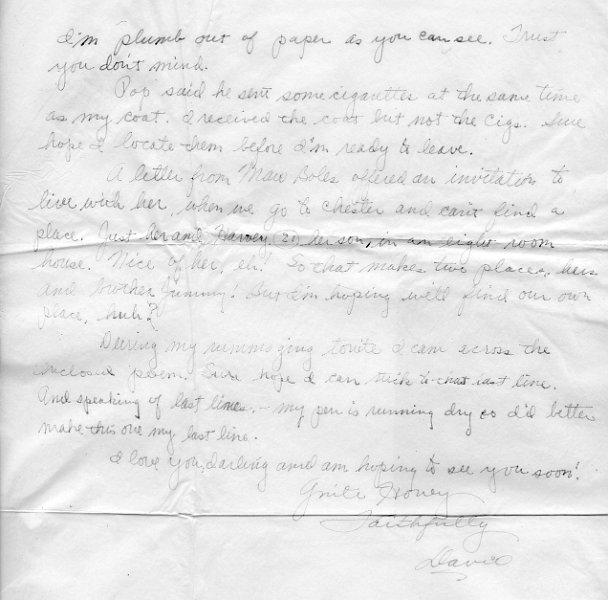 I'm plumb out of paper as you can see. Trust
you don't mind.
Pop said he sent some cigarettes at the same time
as my coat. I received the coat but not the cigs. Sure
hope I locate them before I'm ready to leave.
A letter from Max Boles offered an invitation to
live with her, when we go to Chester and can't find a
place. Just her and Harvey (20) her son, in an eight room
house. Nice of her, eh! So that makes two places, hers
and brother Jimmy! But I'm hoping we'll find our own
place, huh?
During my rummaging tonite I cam across the
enclosed poem. Sure hope I can stick to that last line.
And speaking of last lines, - my pen is running dry so I'd better
make this one my last line.
I love you, darling and am hoping to see you soon!
Gnite Honey
Faithfully
David